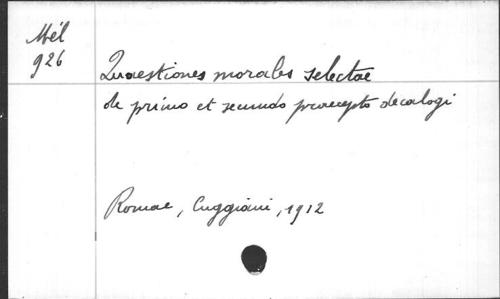 Mél
926
Quaestiones morales selectae
de primo et secundo praecepto decalogi
Romae, Cuggiani, 1912